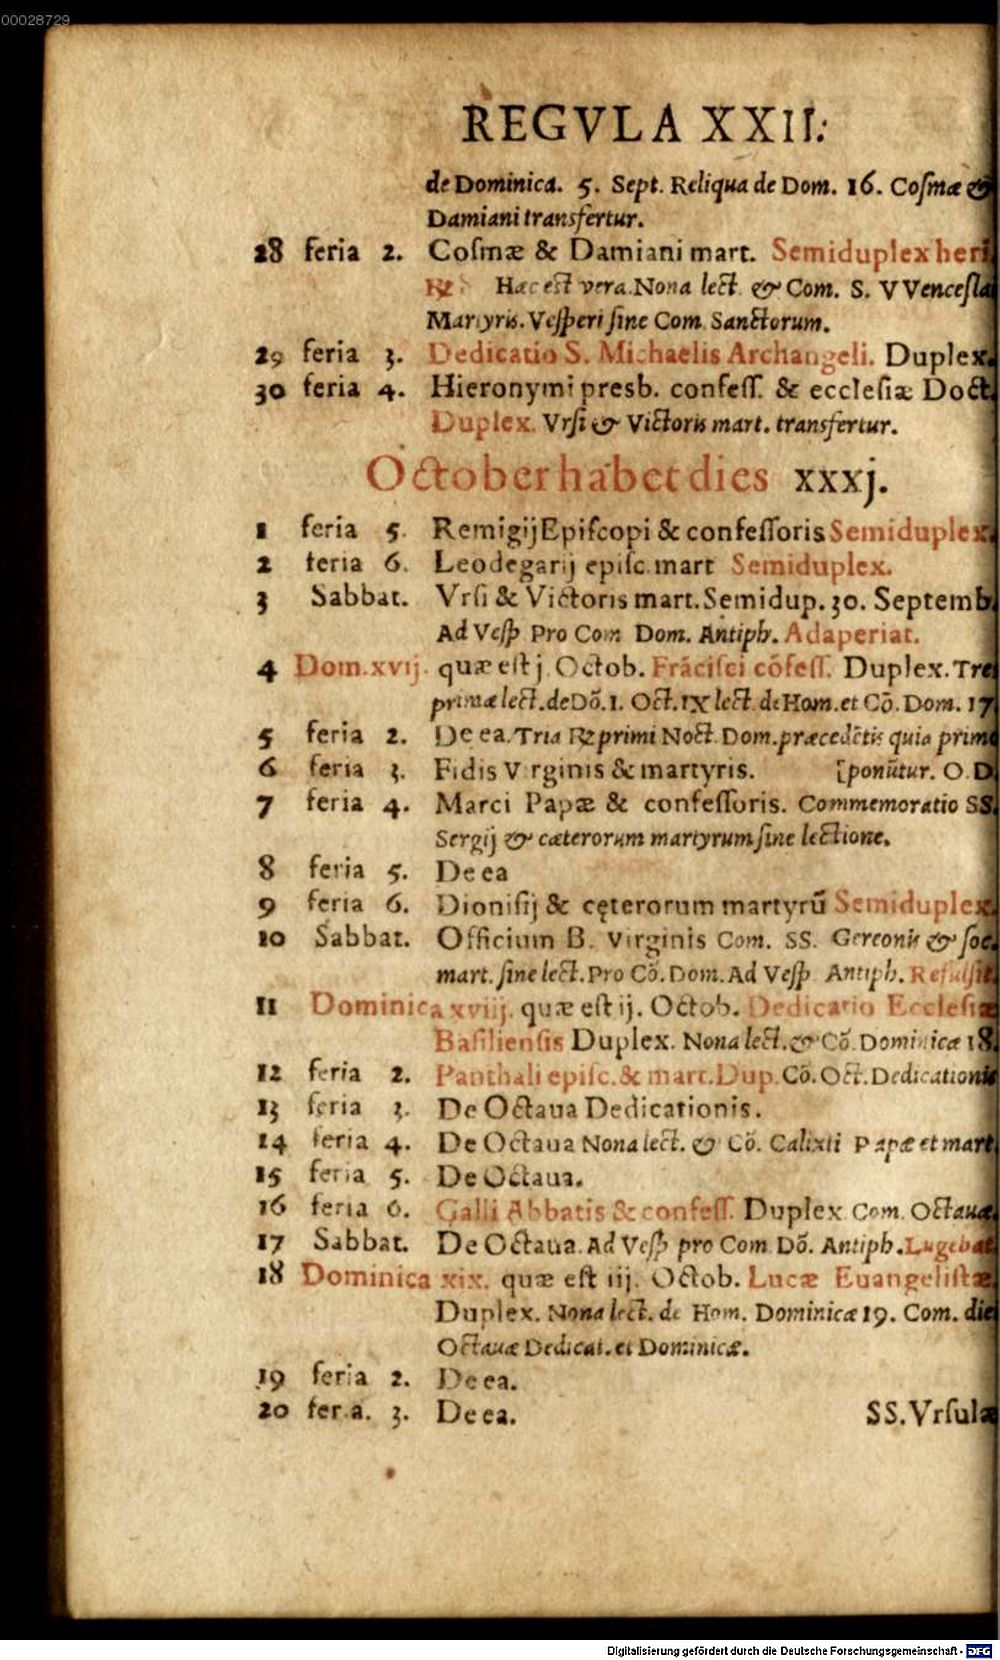 00028729
REGVLA XXII.
de Dominica. 5. Sept. Reliqua de Dom. 16. Cosmæ &
Damiani transfertur.
28 feria 2. Cosmæ & Damiani mart. Semiduplex heri
℟ Hac est vera. Nona lect. & Com. S. VVencesla
Martyris. Vesperi sine Com. Sanctorum.
29 feria 3. Dedicatio S. Michaelis Archangeli. Duplex.
30 feria 4. Hieronymi presb. confess. & ecclesiæ Doct.
Duplex. Vrsi & Victoris mart. transfertur.
October habet dies xxxj.
1 feria 5. Remigij Episcopi & confessoris Semiduplex.
2 feria 6. Leodegarij episc. mart Semiduplex.
3 Sabbat. Vrsi & Victoris mart. Semidup. 30. Septemb.
Ad Vesp Pro Com Dom. Antiph. Adaperiat.
4 Dom. xvij. quæ est j. Octob. Frãcisci cõfess. Duplex. Tres
primæ lect. de Dõ. 1. Oct. IX lect. de Hom. et Cõ. Dom. 17.
5 feria 2. De ea. Tria ℟ primi Noct. Dom. præcedẽtis quia prima
6 feria 3. Fidis Virginis & martyris. [ponũtur. O. D.
7 feria 4. Marci Papæ & confessoris. Commemoratio SS.
Sergij & cæterorum martyrum sine lectione.
8 feria 5. De ea
9 feria 6. Dionisij & cęterorum martyrũ Semiduplex.
10 Sabbat. Officium B. Virginis Com. SS. Gereonis & soc.
mart. sine lect. Pro Cõ. Dom. Ad Vesp Antiph. Refulsit
11 Dominica xviij. quæ est ij. Octob. Dedicatio Ecclesiæ
Basiliensis Duplex. Nona lect. & Cõ. Dominicæ 18.
12 feria 2. Panthali episc. & mart. Dup. Cõ. Oct. Dedicationis
13 feria 3. De Octaua Dedicationis.
14 feria 4. De Octaua Nona lect. & Cõ. Calixti Papæ et mart.
15 feria 5. De Octaua.
16 feria 6. Galli Abbatis & confess. Duplex Com. Octauæ
17 Sabbat. De Octaua. Ad Vesp pro Com. Dõ. Antiph. Lugebat
18 Dominica xix. quæ est iij. Octob. Lucæ Euangelistæ.
Duplex. Nona lect. de Hom. Dominicæ 19. Com. diei
Octauæ Dedicat. et Dominicæ.
19 feria 2. De ea.
20 feria. 3. De ea. SS. Vrsulæ
Digitalisierung gefördert durch die Deutsche Forschungsgemeinschaft - DFG